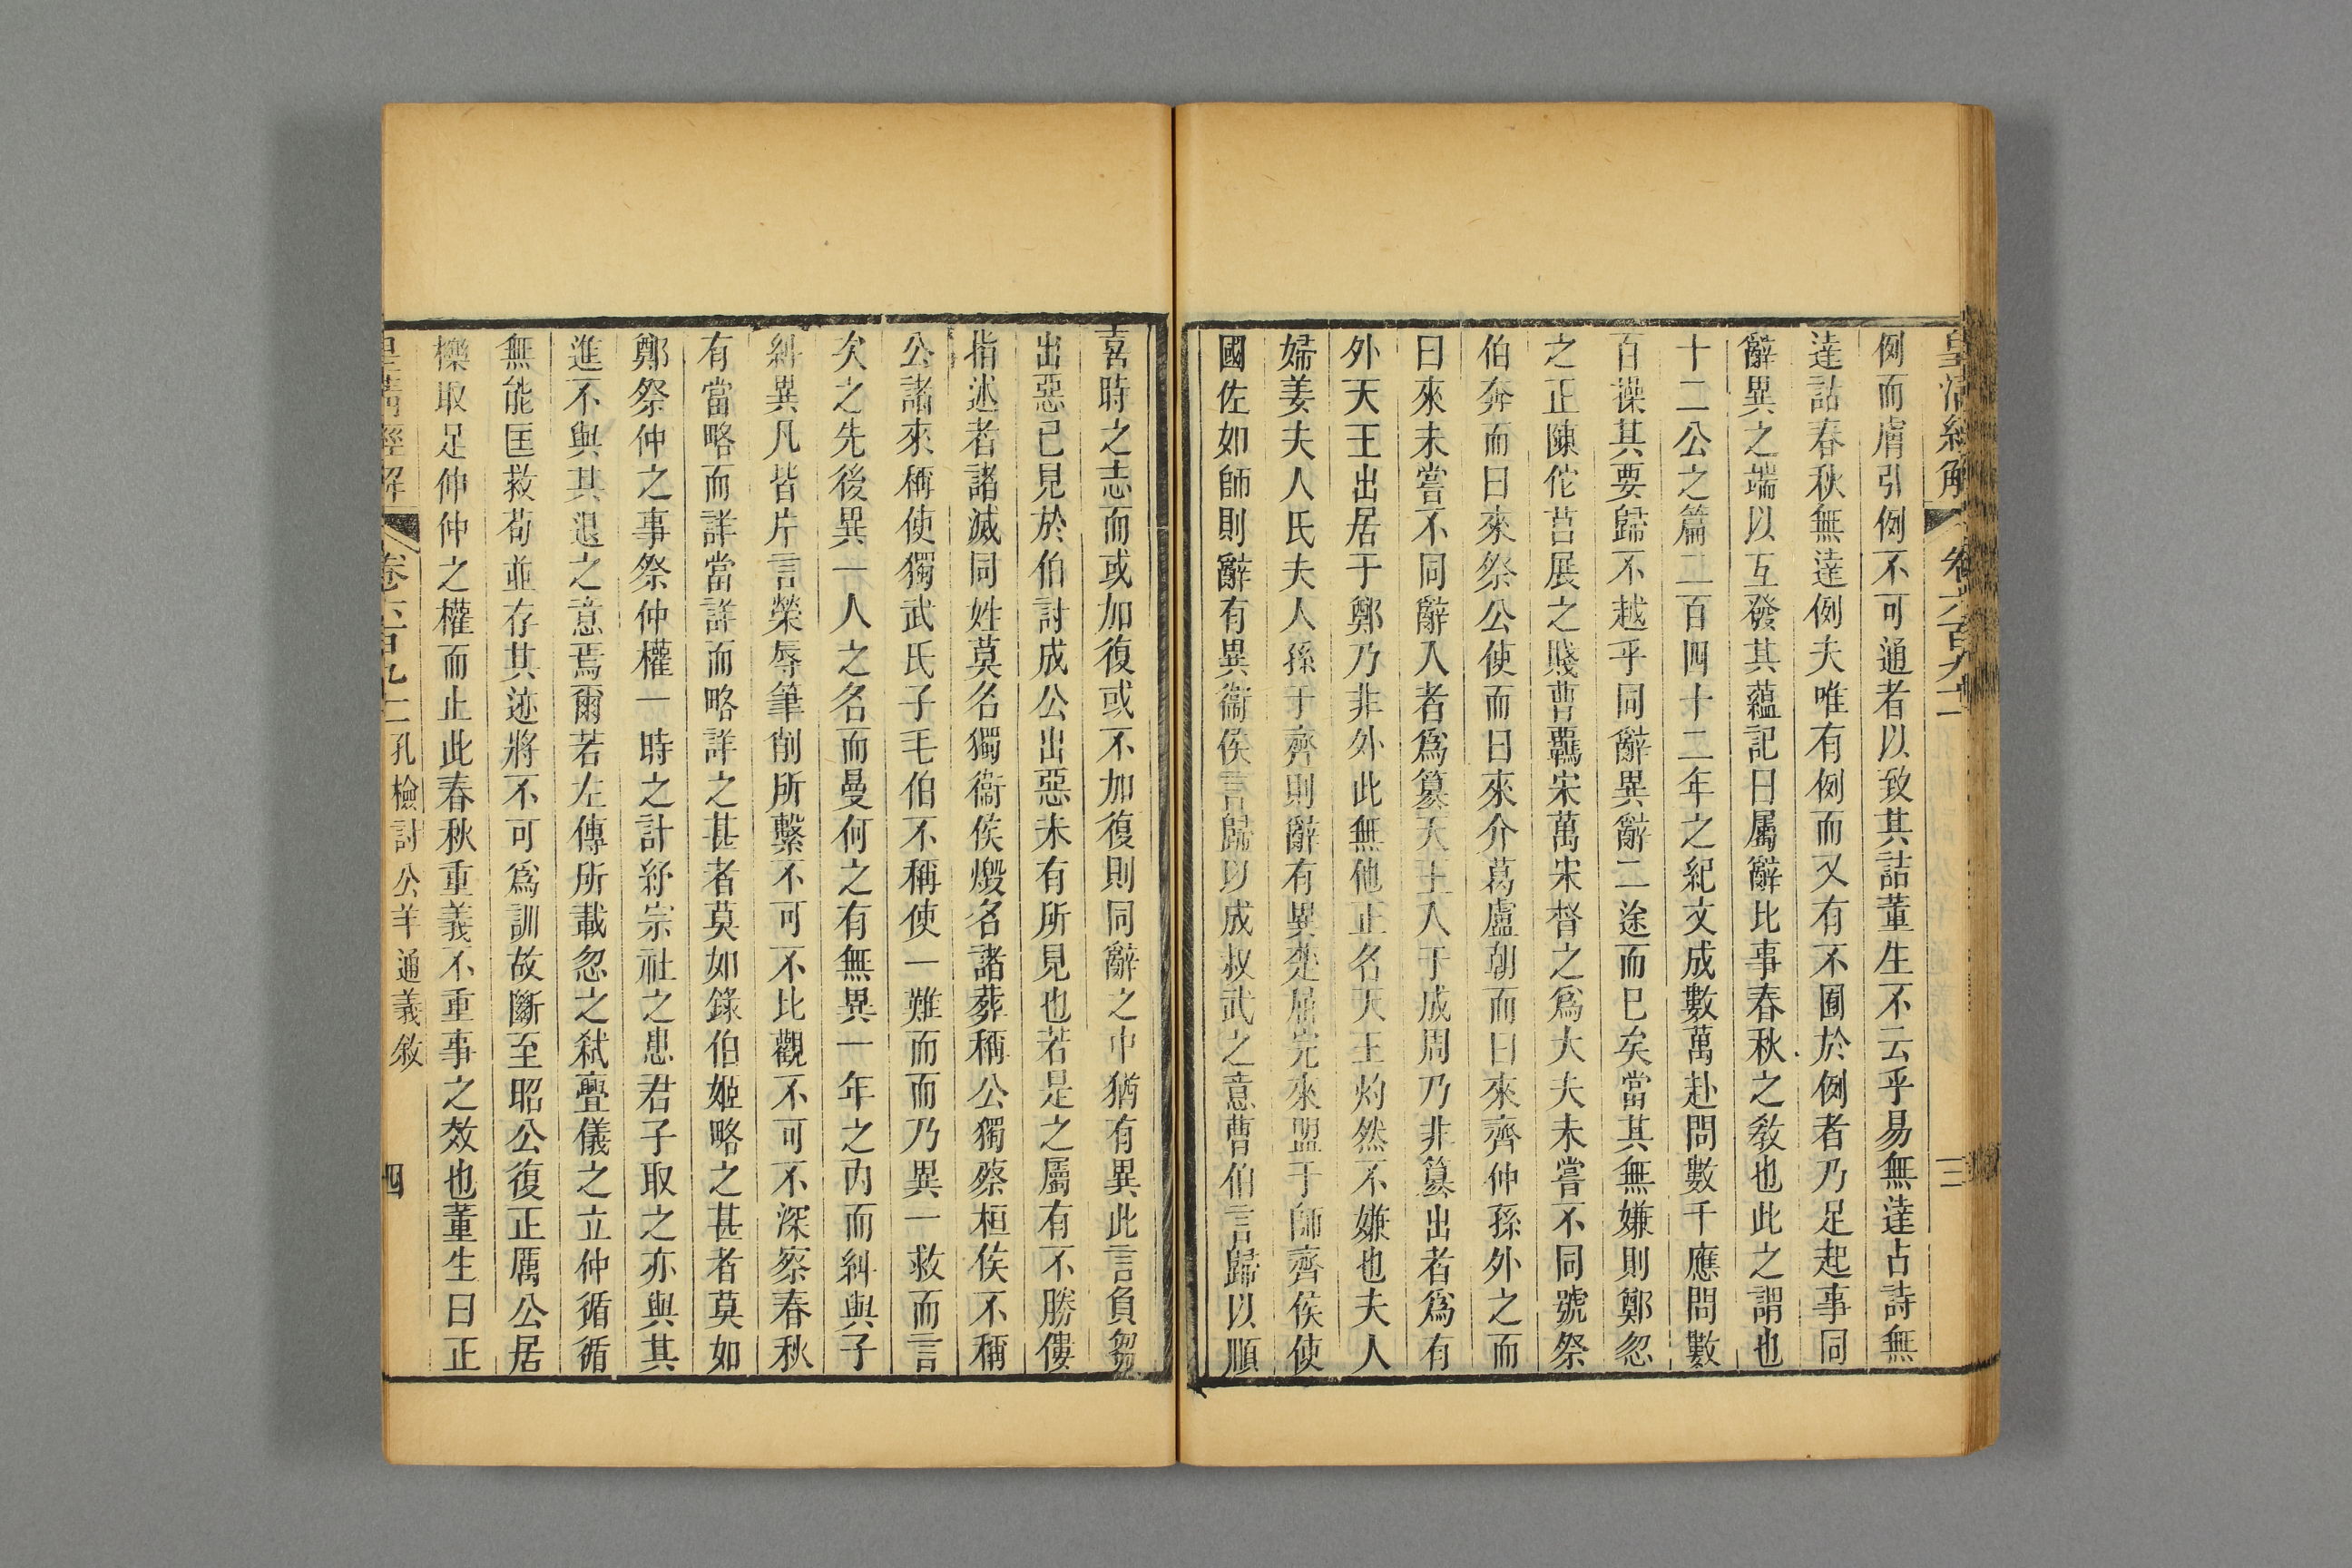 皇清經解 卷六百九十二 三
例而膚引例不可通者以致其詰董生不云乎易無達占詩無
達詁春秋無達例夫唯有例而又有不囿於例者乃足起事同
辭異之端以互發其蘊記曰屬辭比事春秋之敎也此之謂也
十二公之篇二百四十二年之紀文成數萬赴問數千應問數
百操其要歸不越乎同辭異辭二途而已矣當其無嫌則鄭忽
之正陳佗莒展之賤曹羈宋萬宋督之爲大夫未嘗不同號祭
伯奔而曰來祭公使而曰來介葛盧朝而曰來齊仲孫外之而
曰來未嘗不同辭入者爲篡天王入于成周乃非篡出者爲有
外天王出居于鄭乃非外此無他正名天王灼然不嫌也夫人
婦姜夫人氏夫人孫于齊則辭有異楚屈完來盟于師齊侯使
國佐如師則辭有異衞侯言歸以成叔武之意曹伯言歸以順
喜時之志而或加復或不加復則同辭之中猶有異此言負芻
出惡已見於伯討成公出惡未有所見也若是之屬有不勝僂
指述者諸滅同姓莫名獨衞侯燬名諸葬稱公獨蔡桓侯不稱
公諸來稱使獨武氏子毛伯不稱使一難而而乃異一救而言
矣之先後異一人之名而曼何之有無異一年之內而糾與子
糾異凡皆片言榮辱筆削所繫不可不比觀不可不深察春秋
有當略而詳當詳而略詳之甚者莫如錄伯姬略之甚者莫如
鄭祭仲之事祭仲權一時之計紓宗社之患君子取之亦與其
進不與其退之意焉爾若左傳所載忽之弑亹儀之立仲循循
無能匡救苟並存其迹將不可爲訓故斷至昭公復正厲公居
櫟取足伸仲之權而止此春秋重義不重事之效也董生曰正
皇清經解 卷六百九十二 孔檢討公羊通義敘 四